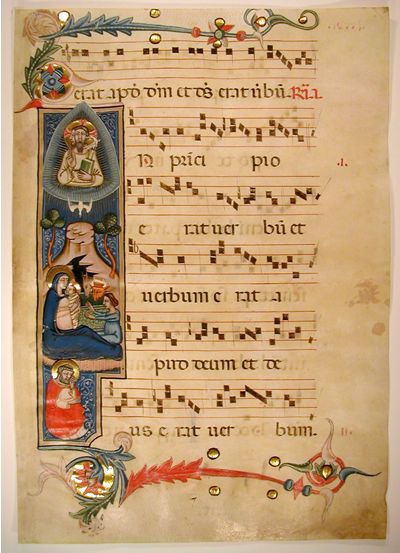 erat apō dm̄ et ds̄ erat ūbū. Rīa
N prīci pio
e rat uer bū et
uerbum e rat a
pud deum et de
us e rat uer bum.